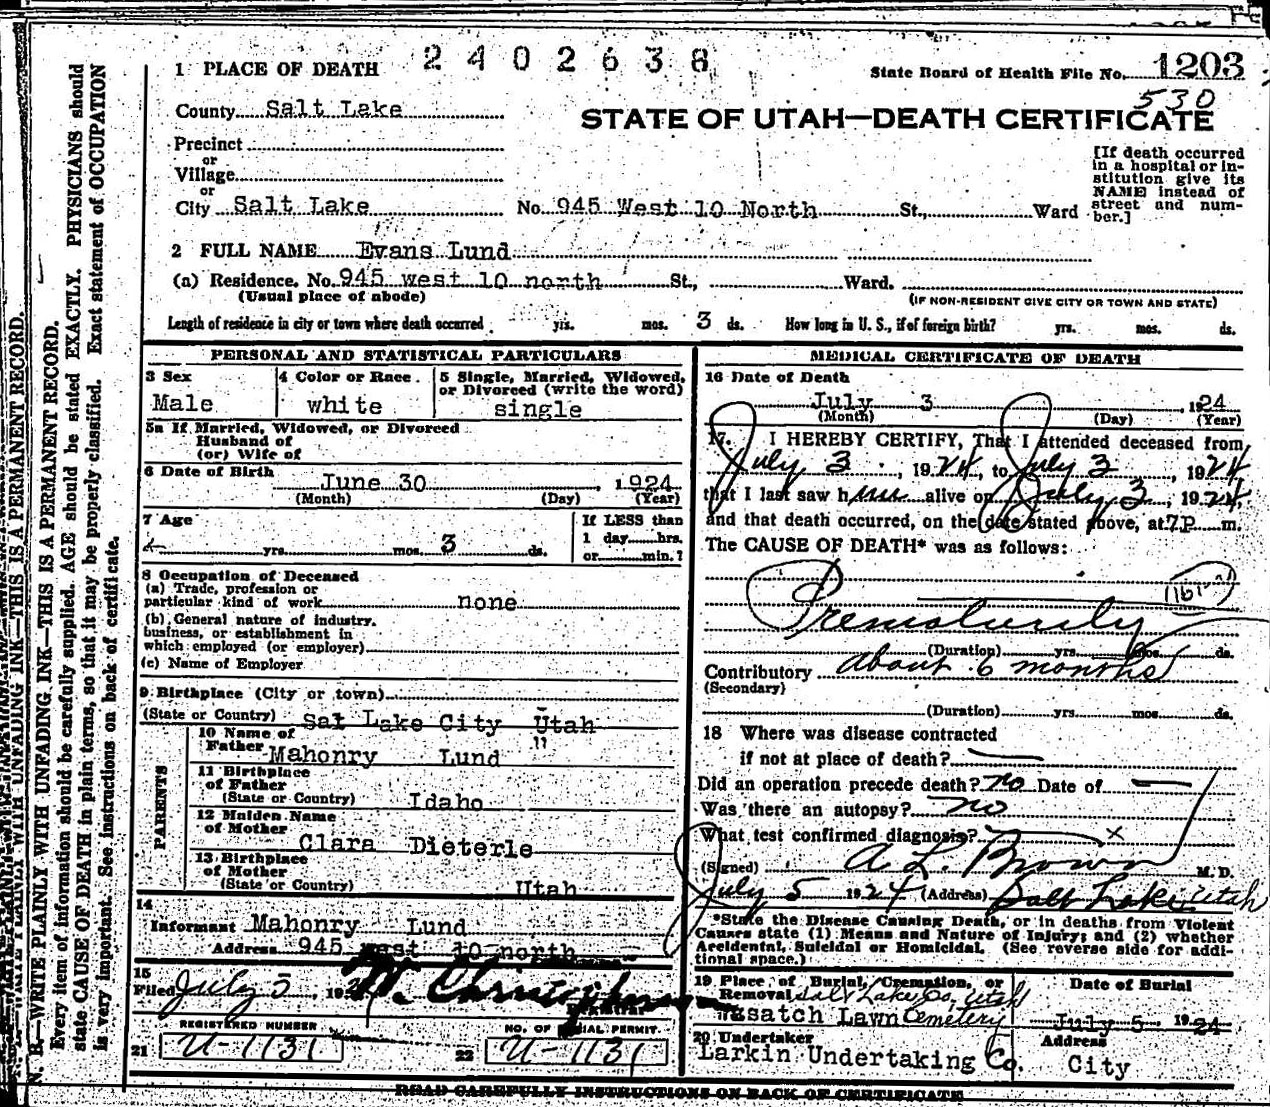 2402638
1 PLACE OF DEATH
State Board of Health File No. 1203
530
County Salt Lake
STATE OF UTAH—DEATH CERTIFICATE
Precinct
or
Village
or
City Salt Lake No. 945 West 10 North St., Ward
[If death occurred
in a hospital or in-
stitution give its
NAME instead of
street and num-
ber.]
2 FULL NAME Evans Lund
(a) Residence. No. 945 west 10 north St., Ward.
(Usual place of abode) (IF NON-RESIDENT GIVE CITY OR TOWN AND STATE)
Length of residence in city or town where death occurred yrs. mos. 3 ds. How long in U. S., if of foreign birth? yrs. mos. ds.
PERSONAL AND STATISTICAL PARTICULARS
3 Sex
Male
4 Color or Race
white
5 Single, Married, Widowed,
or Divorced (write the word)
single
5a If Married, Widowed, or Divorced
Husband of
(or) Wife of
6 Date of Birth
June 30, 1924
(Month) (Day) (Year)
7 Age
yrs. mos. 3 ds.
If LESS than
1 day hrs.
or min.?
8 Occupation of Deceased
(a) Trade, profession or
particular kind of work none
(b) General nature of industry,
business, or establishment in
which employed (or employer)
(c) Name of Employer
9 Birthplace (City or town)
(State or Country) Sat Lake City Utah
PARENTS
10 Name of
Father Mahonry Lund "
11 Birthplace
of Father
(State or Country) Idaho
12 Maiden Name
of Mother
Clara Dieterle
13 Birthplace
of Mother
(State or Country) Utah
14
Informant Mahonry Lund
Address 945 west 10 north
15
Filed July 5, 192
REGISTERED NUMBER
21 U-1131
NO. OF BURIAL PERMIT.
22 U-1131
MEDICAL CERTIFICATE OF DEATH
16 Date of Death
July 3, 1924
(Month) (Day) (Year)
17. I HEREBY CERTIFY, That I attended deceased from
July 3, 1924, to July 3, 1924
that I last saw him alive on July 3, 1924,
and that death occurred, on the date stated above, at 7P m.
The CAUSE OF DEATH* was as follows:
Prematurity
(Duration) yrs. mos. ds.
Contributory about 6 months
(Secondary)
(Duration) yrs. mos. ds.
18 Where was disease contracted
if not at place of death?
Did an operation precede death? no Date of
Was there an autopsy? no
What test confirmed diagnosis? x
(Signed) A L. Brown M. D.
July 5 1924 (Address) Salt Lake, Utah
*State the Disease Causing Death, or in deaths from Violent
Causes state (1) Means and Nature of Injury; and (2) whether
Accidental, Suicidal or Homicidal. (See reverse side for addi-
tional space.)
19 Place of Burial, Cremation, or
Removal, Salt Lake Co, Utah
Wasatch Lawn Cemetery
Date of Burial
July 5 1924
20 Undertaker
Larkin Undertaking Co.
Address
City
READ CAREFULLY INSTRUCTIONS ON BACK OF CERTIFICATE
N. B.—WRITE PLAINLY WITH UNFADING INK—THIS IS A PERMANENT RECORD.
Every item of information should be carefully supplied. AGE should be stated EXACTLY. PHYSICIANS should
state CAUSE OF DEATH in plain terms, so that it may be properly classified. Exact statement of OCCUPATION
is very important. See instructions on back of certificate.